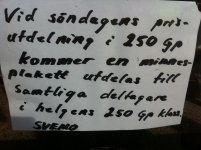 Vid söndagens pris-
utdelning i 250 Gp
kommer en minnes-
plakett utdelas till
samtliga deltagare
i helgens 250 Gp klass.
SVEMO